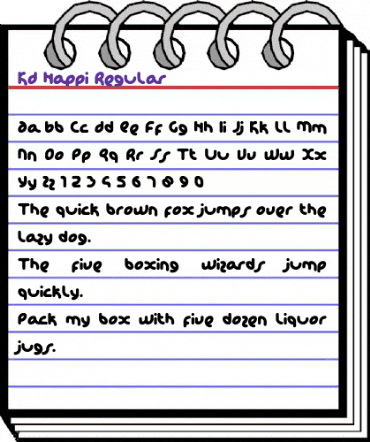 Kd Happi Regular
aa bb Cc dd ee Ff Gg Hh Ii Jj Kk LL Mm
Nn Oo Pp Qq Rr Ss Tt Uu Vv Ww Xx
Yy Zz 1 2 3 4 5 6 7 8 9 0
The quick brown fox jumps over the
Lazy dog.
The five boxing wizards jump
quickly.
Pack my box with five dozen liquor
jugs.